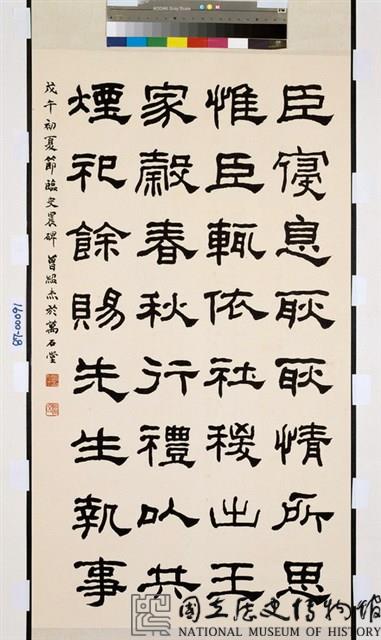 臣寑息耿耿情所思
惟臣輒依社稷出王
家穀春秋行禮以共
煙祀餘賜先生執事
戊午初夏節臨史晨碑 曾紹杰於萬石堂
87-00091
國立歷史博物館
NATIONAL MUSEUM OF HISTORY